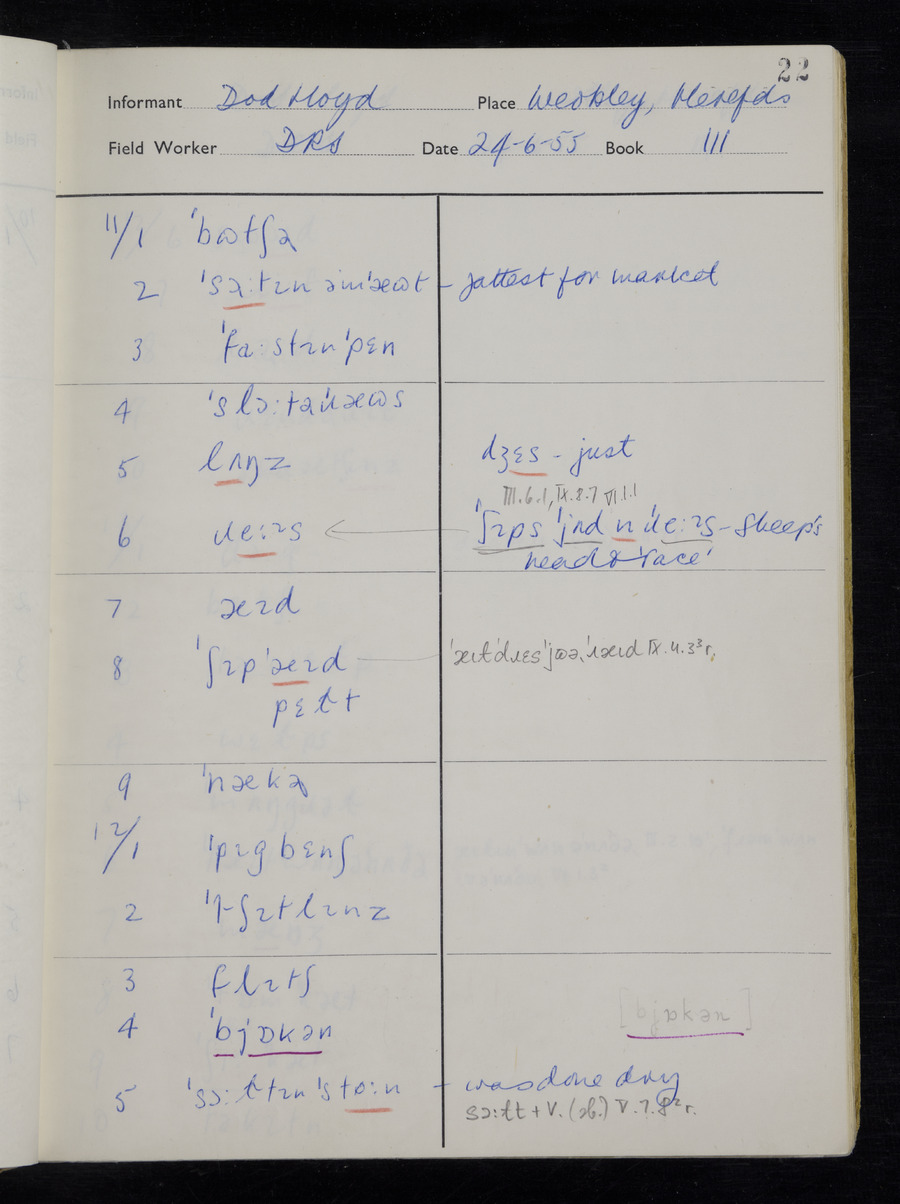 22
Informant Dod Lloyd Place Weobley, Herefds
Field Worker DRS Date 24-6-55 Book III
11/1 ˈbɷtʃɚ
2 ˈsɔːtɪn əmˈæɷt – fattest for market
3 ˈfaːstɪnˈpɛn
4 ˈslɔːtəɹæɷs
5 lʌŋz dʒɛs – just
III.6.1, IX.8.7 VI.1.1
6 ɹeːɪs ˈʃɪps ˈjɛd n ɹeːɪs – sheep's
head & 'race'
7 æɪd
8 ˈʃɪpˈæɪd
pɛɫt
9 ˈnækɚ
12/1 ˈpɪgbɛnʃ
2 ˈtʃɪtlɪnz
3 flɪtʃ
4 ˈbjɒkən [bjɒkən]
5 ˈsɔːɫtɪn ˈstɒːn – was done dry
sɔːɫt + V. (ɔb.) V.7.8² r.